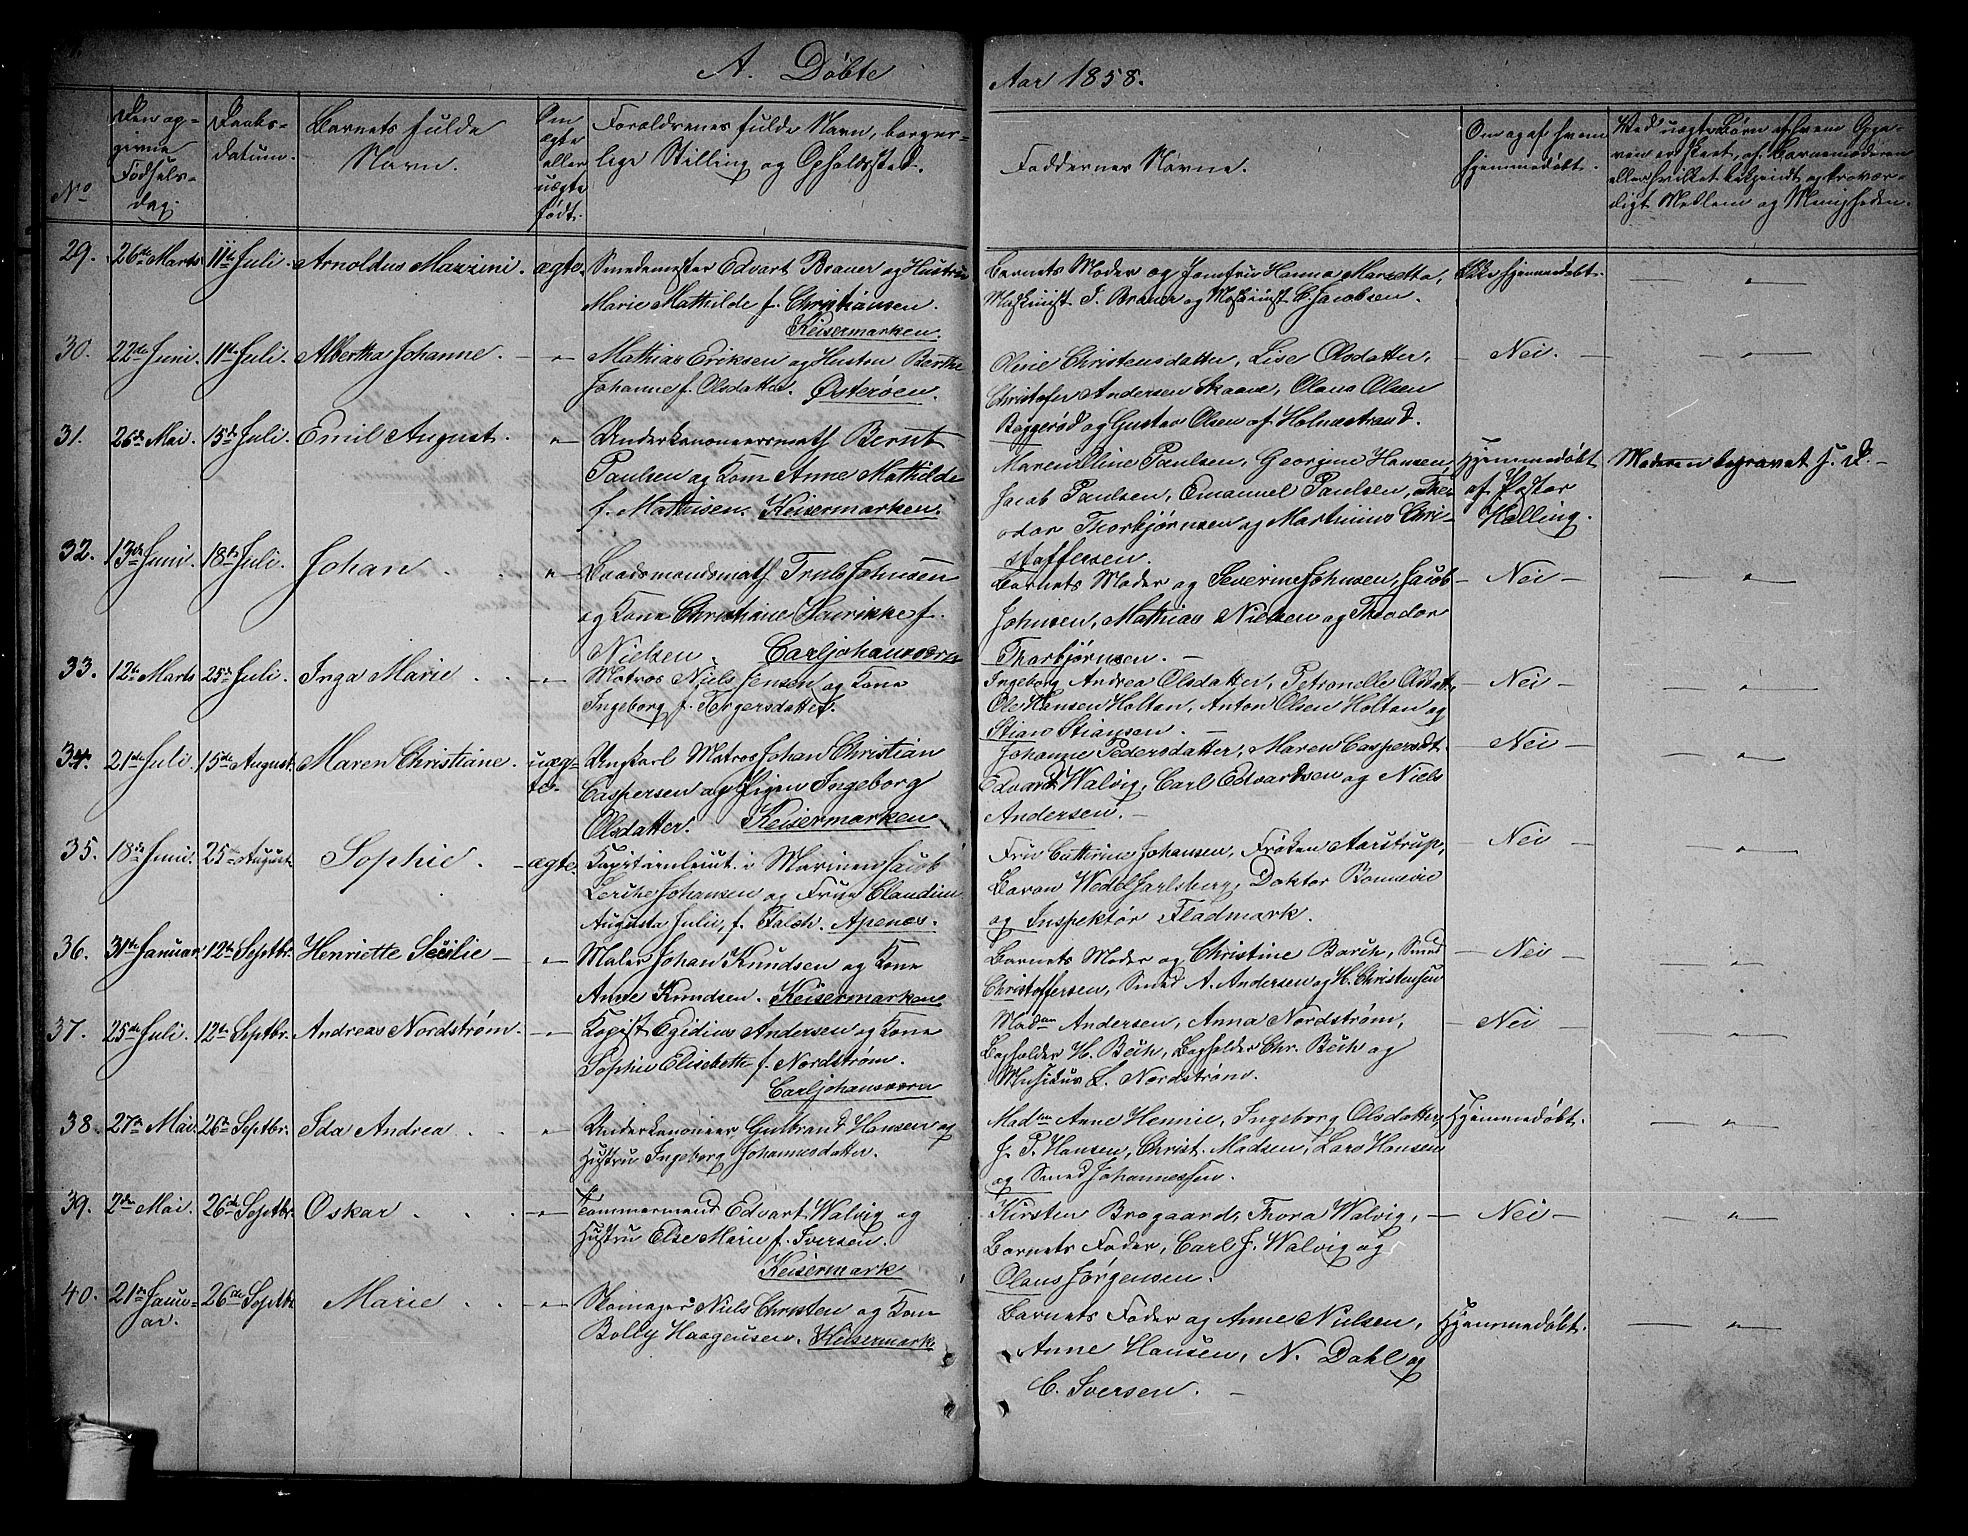 A. Døbte
Aar 1858.
No
Den op-
givne
Fødsels-
dag.
Daabs-
datum.
Barnets fulde
Navn.
Om
ægte
eller
uægte
født.
Forældrenes fulde Navn, borger-
lige Stilling og Opholdssted.
Faddernes Navne.
Om og af hvem
hjemmedøbt.
Ved uægte Børn af hvem Opga-
ven er skeet, af Barnemoderen
eller hvilket bekjendt og trovær-
digt Medlem og Menigheden.
29. 26de Marts 11te Juli. Arnoldus Mazzini. ægte. Smedemester Edvart Braner og Hustru
Marie Mathilde f. Christiansen.
Keisermarken.
Barnets Moder og Jomfru Hanna Marsetta,
Maskinist J. Braner og Maskinist C. Jacobsen.
Ikke hjemmedøbt.
30. 22de Juni 11te Juli. Albertha Johanne. — " — Mathias Eriksen og Hustru Berthe
Johanne f. Olsdatter. Østerøen.
Oline Christensdatter, Lise Olsdatter,
Christofer Andersen Skaane, Olaus Olsen
Baggerød og Gustav Olsen af Holmestrand.
— Nei. —
31. 26de Mai. 15de Juli. Emil August. " — Underkanoneersmath Bernt
Paulsen og Kone Anne Mathilde
f. Mathisen. Keisermarken.
Maren Oline Paulsen, Georgine Hansen,
Jacob Paulsen, Emanuel Paulsen, The-
odor Thorbjørnsen og Martinius Chri-
stoffersen.
Hjemmedøbt
af Pastor
Halling.
Moderen begravet s. D. —
32. 13de Juni. 18de Juli. Johan . . " — Baadsmandsmath Truls Johnsen
og Kone Christiane Henrikke f.
Nielsen. Carljohansværn
Barnets Moder og Severine Johnsen, Jacob
Johnsen, Mathias Nielsen og Theodor
Thorbjørnsen. —
— Nei —
33. 12te Marts 25de Juli. Inga Marie . . — " — Matros Niels Jensen og Kone
Ingeborg f. Torgersdatter.
Ingeborg Andrea Olsdatter, Petronelle Olsdatt.,
Ole Hansen Holtan, Anton Olsen Holtan og
Stian Stiansen. —
— Nei —
34. 21de Juli. 15de August. Maren Christiane. uæg-
te. Ungkarl Matros Johan Christian
Caspersen og Pigen Ingeborg
Olsdatter. Keisermarken
Johanne Pedersdatter, Maren Caspersdt.
Edvard Walvig, Carl Edvardsen og Niels
Andersen. —
— Nei —
35. 18de Juni. 25de August. Sophie . — ægte. Kapitainleut. i Marinen Jacob
Lerche Johansen og Frue Claudine
Augusta Julie, f. Falch. Apenæs.
Fru Cathrine Johansen, Frøken Aarstrup,
Baron Wedel Jarlsberg, Doktor
og Inspektør Fladmark.
— Nei —
36. 31te Januar 12te Septbr. Henriette Secilie — — " — Maler Johan Knudsen og Kone
Anne Knudsen. Keisermarken
Barnets Moder og Christine Barch, Smed
Christoffersen, Smed A. Andersen og H. Christensen
— Nei —
37. 25de Juli. 12te Septbr. Andreas Nordstrøm. — " — Kopist Egidius Andersen og Kone
Sophie Elisabeth f. Nordstrøm.
Carljohansværn
Madm Andersen, Anna Nordstrøm,
Bogholder H. Bech, Bogholder Chr. Bech og
Musikus L. Nordstrøm.
— Nei —
38. 27de Mai. 26de Septbr. Ida Andrea . . " — Underkanoneer Gulbrand Hansen og
Hustru Ingeborg Johannesdatter.
Madm Anne Hennie, Ingeborg Olsdatter,
J. P. Hansen, Christ. Madsen, Lars Hansen
og Smed Johannessen.
Hjemmedøbt.
39. 2den Mai. 26de Septbr. Oskar . . . — " — Tømmermand Edvart Walvig og
Hustru Else Marie f. Iversen.
Keisermark
Kirsten Brogaard, Thora Walvig,
Barnets Fader, Carl J. Walvig og
Olaus Jørgensen.
— Nei —
40. 21de Janu-
ar. 26de Septbr Marie . . — " — Skomager Niels Christen og Kone
Bolly Haagensen. Keisermark
Barnets Fader og Anne Nielsen,
Anne Hansen, N. Dahl og
C. Iversen. —
Hjemmedøbt.